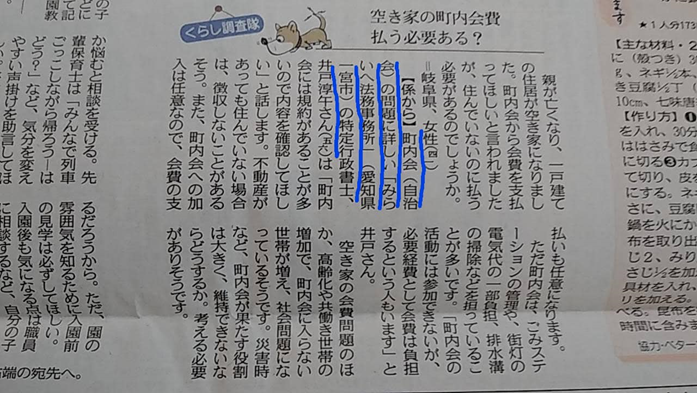 くらし調査隊
空き家の町内会費
払う必要ある？
親が亡くなり、一戸建て
の住居が空き家になりまし
た。町内会から会費を支払
ってほしいと言われました
が、住んでいないのに払う
必要があるのでしょうか。
＝岐阜県、女性
【係から】町内会（自治
会）の問題に詳しい「みら
いへ法務事務所」（愛知県
一宮市）の特定行政書士、
井戸淳午さんは「町内
会には規約があることが多
いので内容を確認してほし
い」と話します。不動産が
あっても住んでいない場合
は、徴収しないことがある
そう。また、町内会への加
入は任意なので、会費の支
払いも任意になります。
ただ町内会は、ごみステ
ーションの管理や、街灯の
電気代の一部負担、排水溝
の掃除などを担っているこ
とが多いです。「町内会の
活動には参加できないが、
必要経費として会費は負担
するという人もいます」と
井戸さん。
空き家の会費問題のほ
か、高齢化や共働き世帯の
増加で、町内会に入らない
世帯が増え、社会問題にな
っているそうです。災害時
など、町内会が果たす役割
は大きく、維持できないな
らどうするか。考える必要
がありそうです。
か悩むと相談を受ける。先
輩保育士は「みんなで列車
ごっこしながら帰ろう」は
どう？」など、気分を変え
やすい声掛けを助言してほ
るだろうから。ただ、園の
雰囲気を知るために入園前
の見学は必ずしてほしい。
入園後も気になる点は職員
に相談するなど、自分の子
右端の宛先へ。
★１人分173
【主な材料・2
（殻つき）30
g、ネギ1/2本
き豆腐1/2丁（
10cm、七味唐
【作り方】❶
を入れ、30分
ははさみで食
に切る❸カブ
て切り、皮を
にする。ネギ
さに、豆腐
鍋を火にか
布を取り出
じ2、みり
さじ1/2を加
具材を入れ、
リを加える。
べる。昆布を
時間に含み
協力・ベター